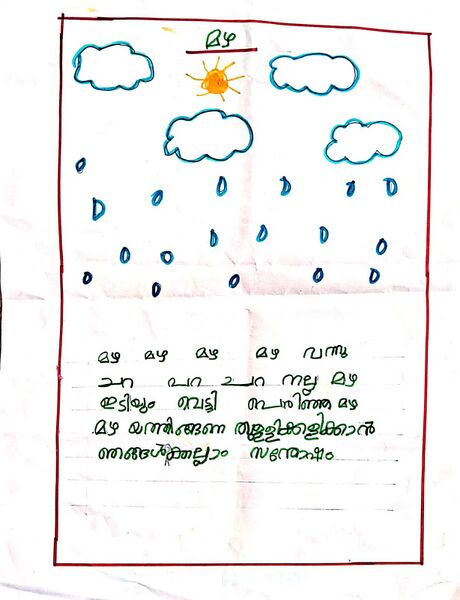 മഴ
മഴ മഴ മഴ മഴ വന്നു
ചറ പറ ചറ നല്ല മഴ
ഇടിയും വെട്ടി പെരിഞ്ഞ മഴ
മഴ യത്തിങ്ങണ തുള്ളിക്കളിക്കാൻ
ഞങ്ങൾക്കെല്ലാം സന്തോഷം